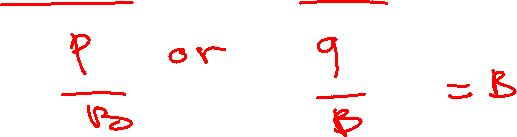 p/B or q/B = B